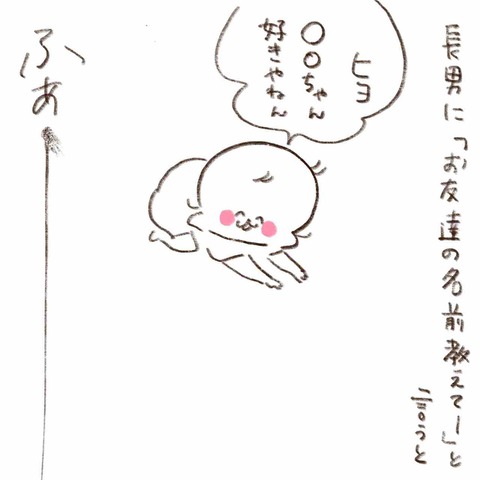 長男に「お友達の名前教えてー」と
言うと
ヒヨ
〇〇ちゃん
好きやねん
ふぁー